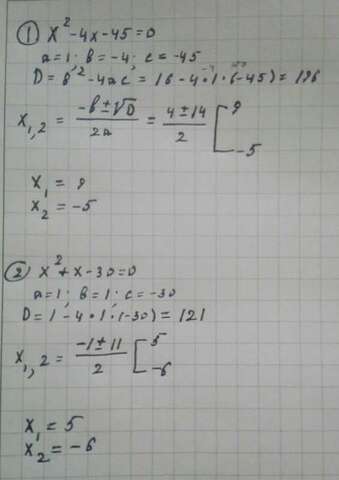 ① x² - 4x - 45 = 0
a = 1; b = -4; c = -45
D = b² - 4ac = 16 - 4·1·(-45) = 196
x₁,₂ = (-b ± √D)/2a = (4 ± 14)/2 [ 9
-5
x₁ = 9
x₂ = -5
② x² + x - 30 = 0
a = 1; b = 1; c = -30
D = 1 - 4·1·(-30) = 121
x₁,₂ = (-1 ± 11)/2 [ 5
-6
x₁ = 5
x₂ = -6